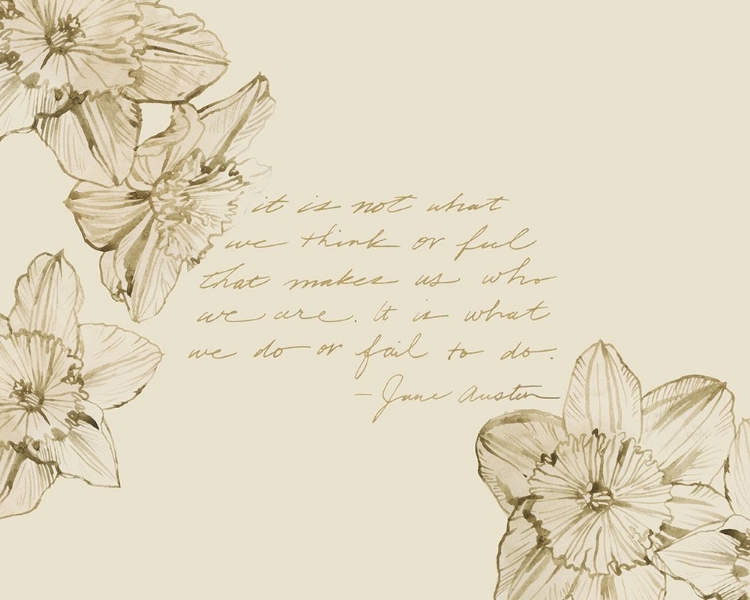 it is not what
we think or feel
that makes us who
we are. It is what
we do or fail to do.
- Jane Austen